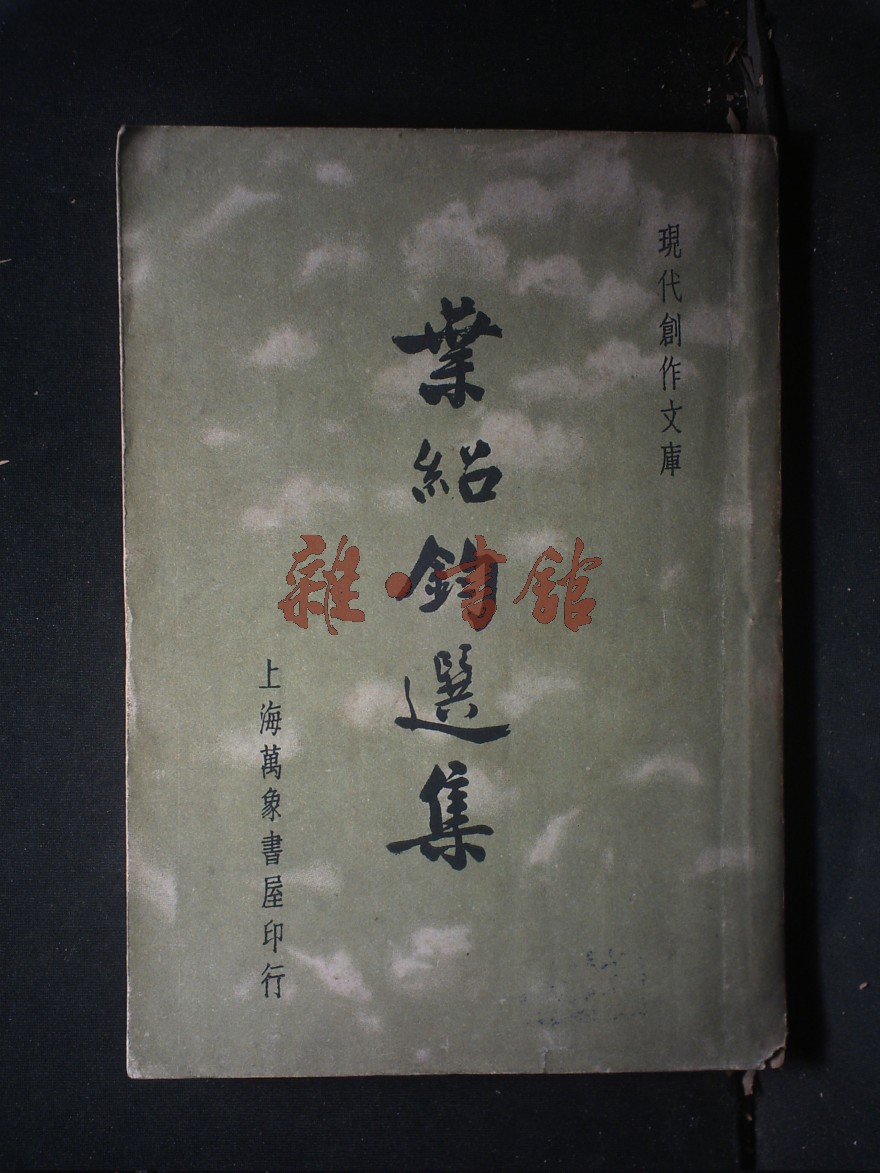 現代創作文庫
葉紹鈞選集
上海萬象書屋印行
雜·書舘